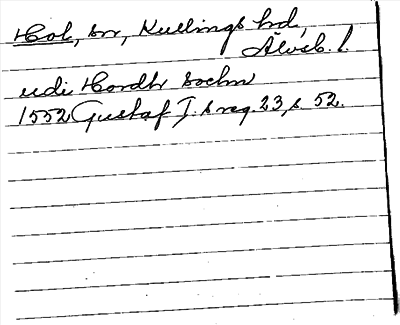 Hol, sn, Kullings hd,
Älvsb. l.
udi Hordh sochn
1552 Gustaf I:s reg. 23, s. 52.